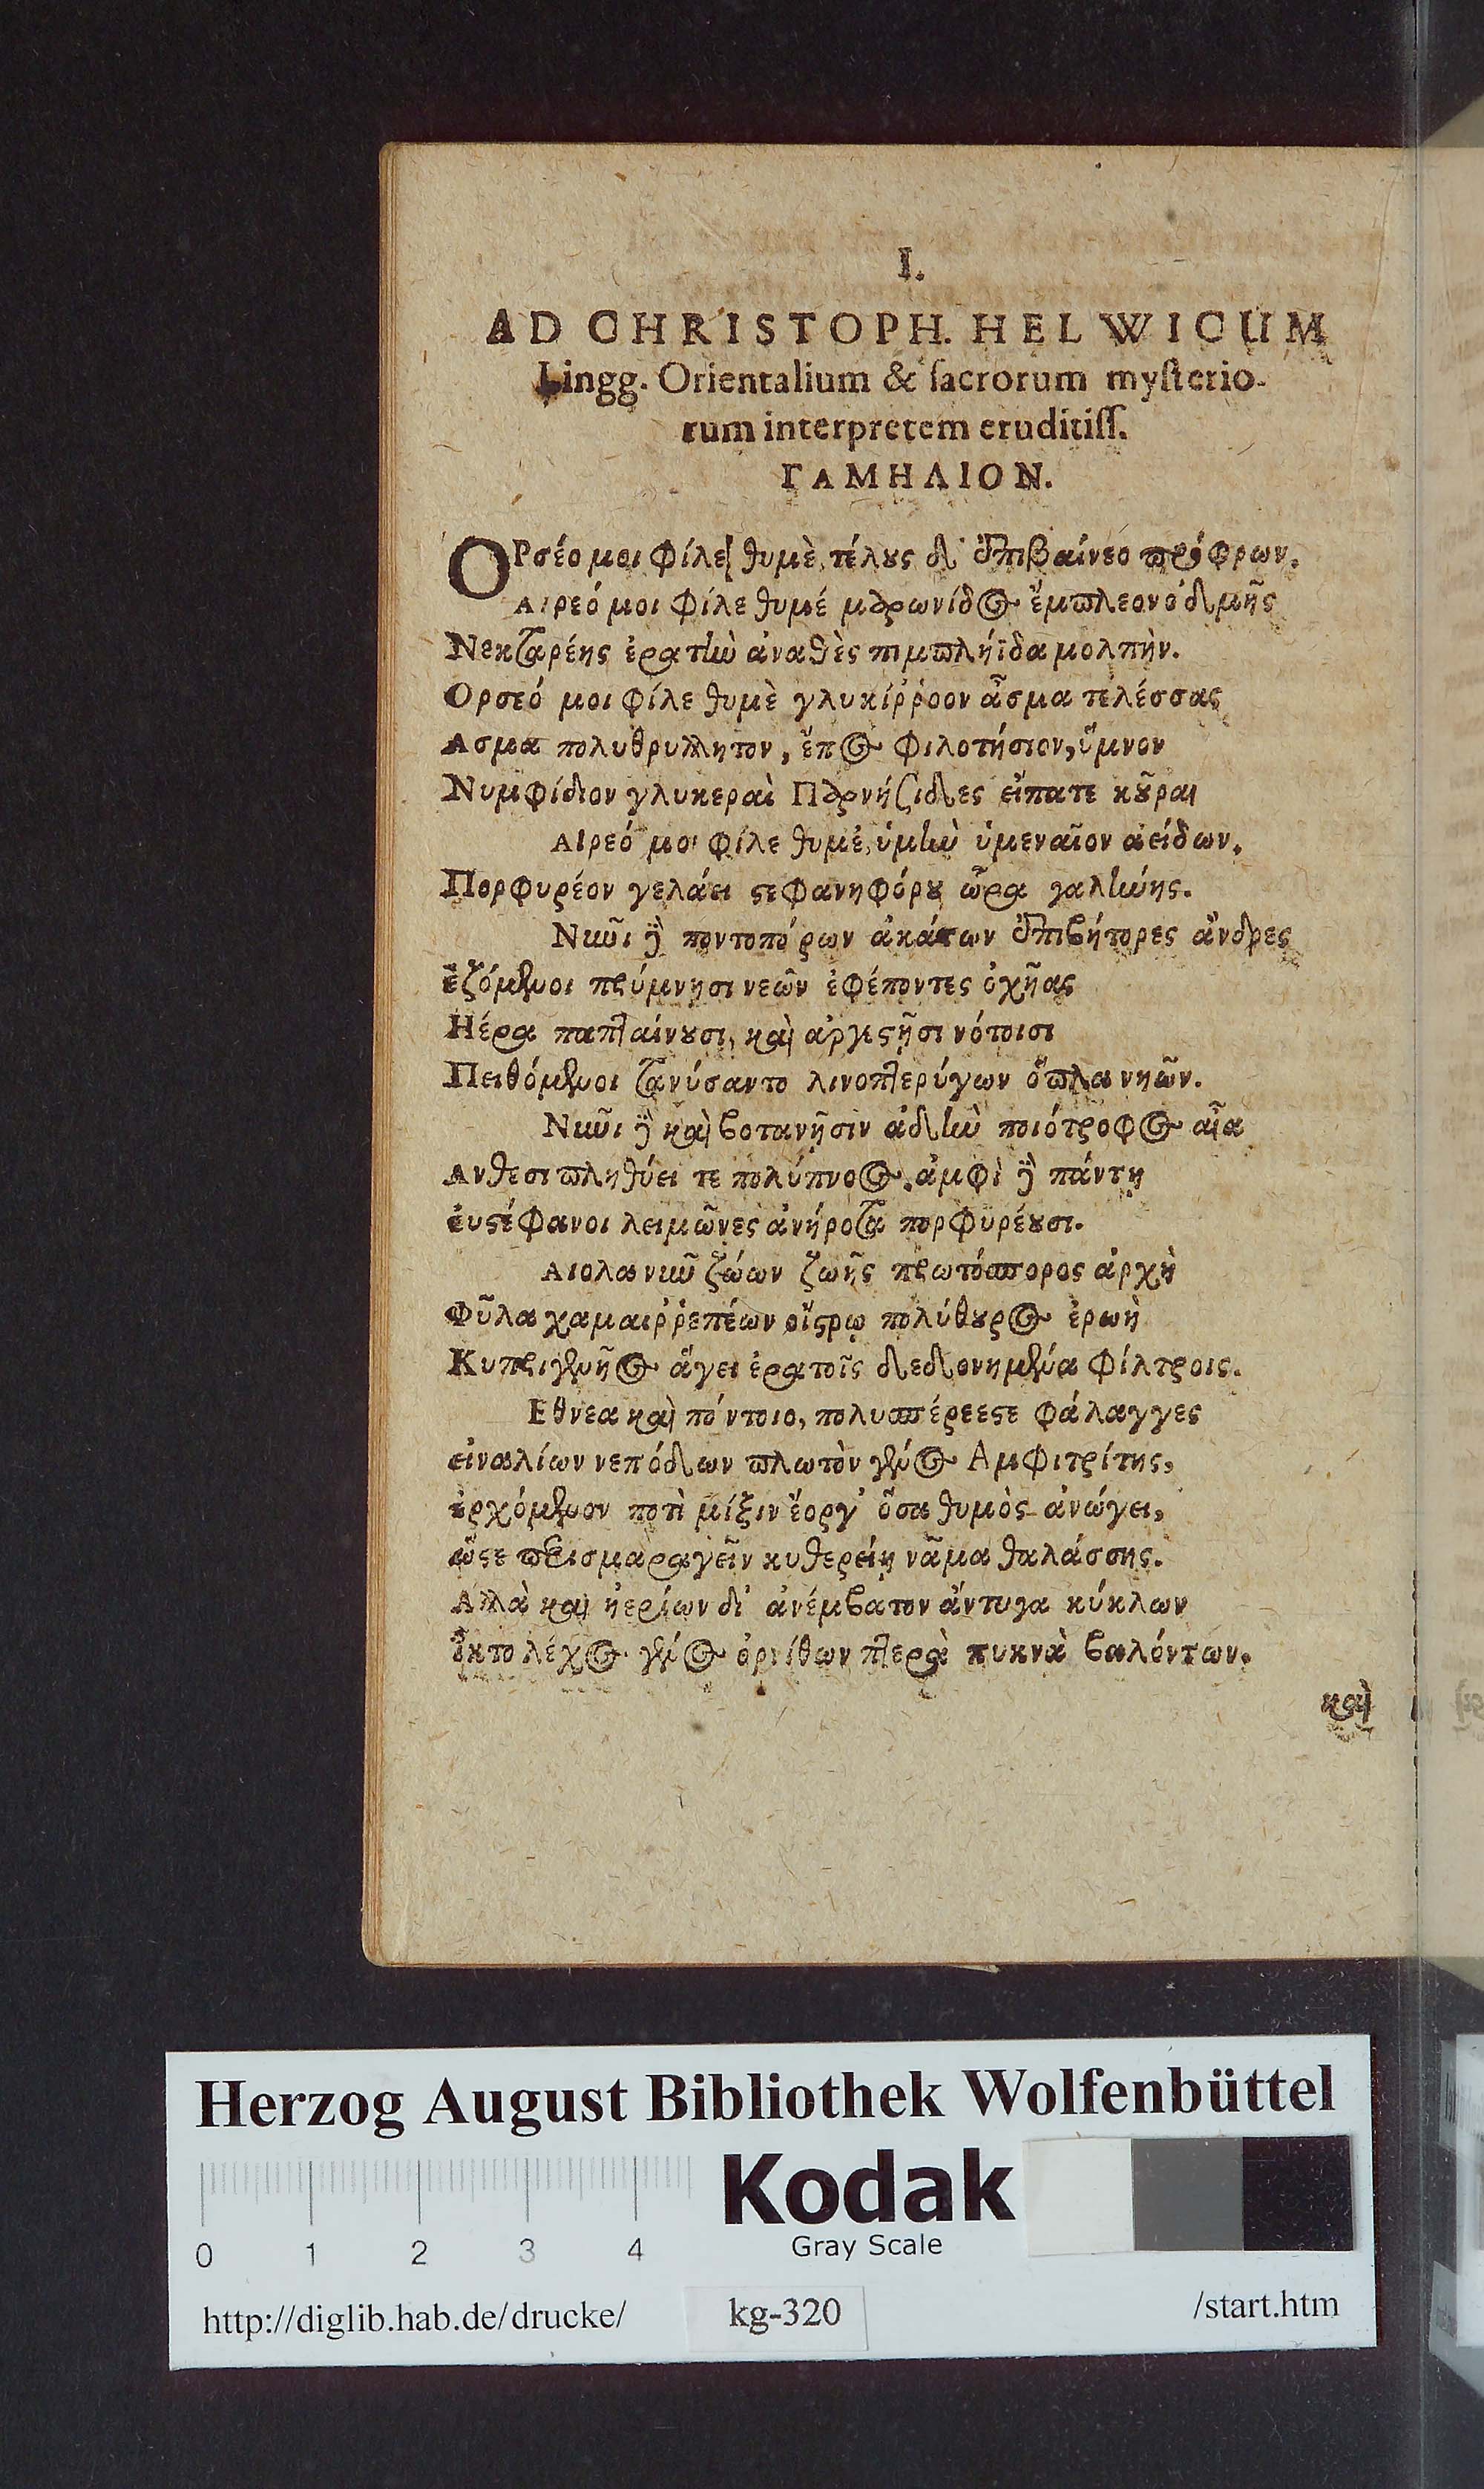 I.
AD CHRISTOPH. HELWICUM
Lingg. Orientalium & sacrorum mysterio-
rum interpretem eruditiss.
ΓΑΜΗΛΙΟΝ.
ΟΡσέο μοι φίλε θυμὲ, τέλους δ' ἐπιβαίνεο πρόφρων.
Αιρεό μοι φίλε θυμέ μαρωνίδος ἔμπλεον ὀδμῆς
Νεκταρέης ἐρατὴν ἀναθὲς πιμπλήϊδα μολπὴν.
Ορσεό μοι φίλε θυμὲ γλυκίῤῥοον ᾆσμα τελέσσας
Ασμα πολυθρυλλητον, ἔπος φιλοτήσιον, ὕμνον
Νυμφίδιον γλυκεραὶ Παρνήσιδες εἴπατε κοῦραι
Αιρεό μοι φίλε θυμέ, ὑμὴν ὑμεναῖον αἰείδων.
Πορφυρέον γελάει στεφανηφόρου ὥρα γαλήνης.
Νῦν δὲ ποντοπόρων ἀκάτων ἐπιβήτορες ἄνδρες
ἑζόμενοι πρύμνησι νεῶν ἐφέποντες ὀχῆας
Ηέρα παπταίνουσι, καὶ ἀργεστῆσι νότοισι
Πειθόμενοι τανύσαντο λινοπτερύγων ὅπλα νηῶν.
Νῦν δὲ καὶ βοτανῆσιν ἀδὴν ποιότροφος αἶα
Ανθεσι πληθύει τε πολύπνοος. ἀμφὶ δὲ πάντη
ἐυστέφανοι λειμῶνες ἀνήροτα πορφυρέουσι.
Αιολα νῦν ζώων ζωῆς πρωτόσπορος ἀρχὴ
Φῦλα χαμαιῤῥεπέων οἴστρῳ πολύθουρος ἐρωὴ
Κυπριγενῆος ἄγει ἐρατοῖς δεδονημένα φίλτροις.
Εθνεα καὶ πόντοιο, πολυσπέρεεστε φάλαγγες
εἰναλίων νεπόδων πλωτὸν γένος Αμφιτρίτης,
ἐρχόμενον ποτὶ μίξιν ἔοργ' ὅσα θυμὸς ἀνώγει,
ὥστε περισμαραγεῖν κυθερείῃ νᾶμα θαλάσσης.
Αλλὰ καὶ ἠερίων δι' ἀνέμβατον ἄντυγα κύκλων
ἵκτο λέχος γένος ὀρνίθων πτερὰ πυκνὰ βαλόντων.
καὶ
Herzog August Bibliothek Wolfenbüttel
Kodak
Gray Scale
0 1 2 3 4
http://diglib.hab.de/drucke/ kg-320 /start.htm